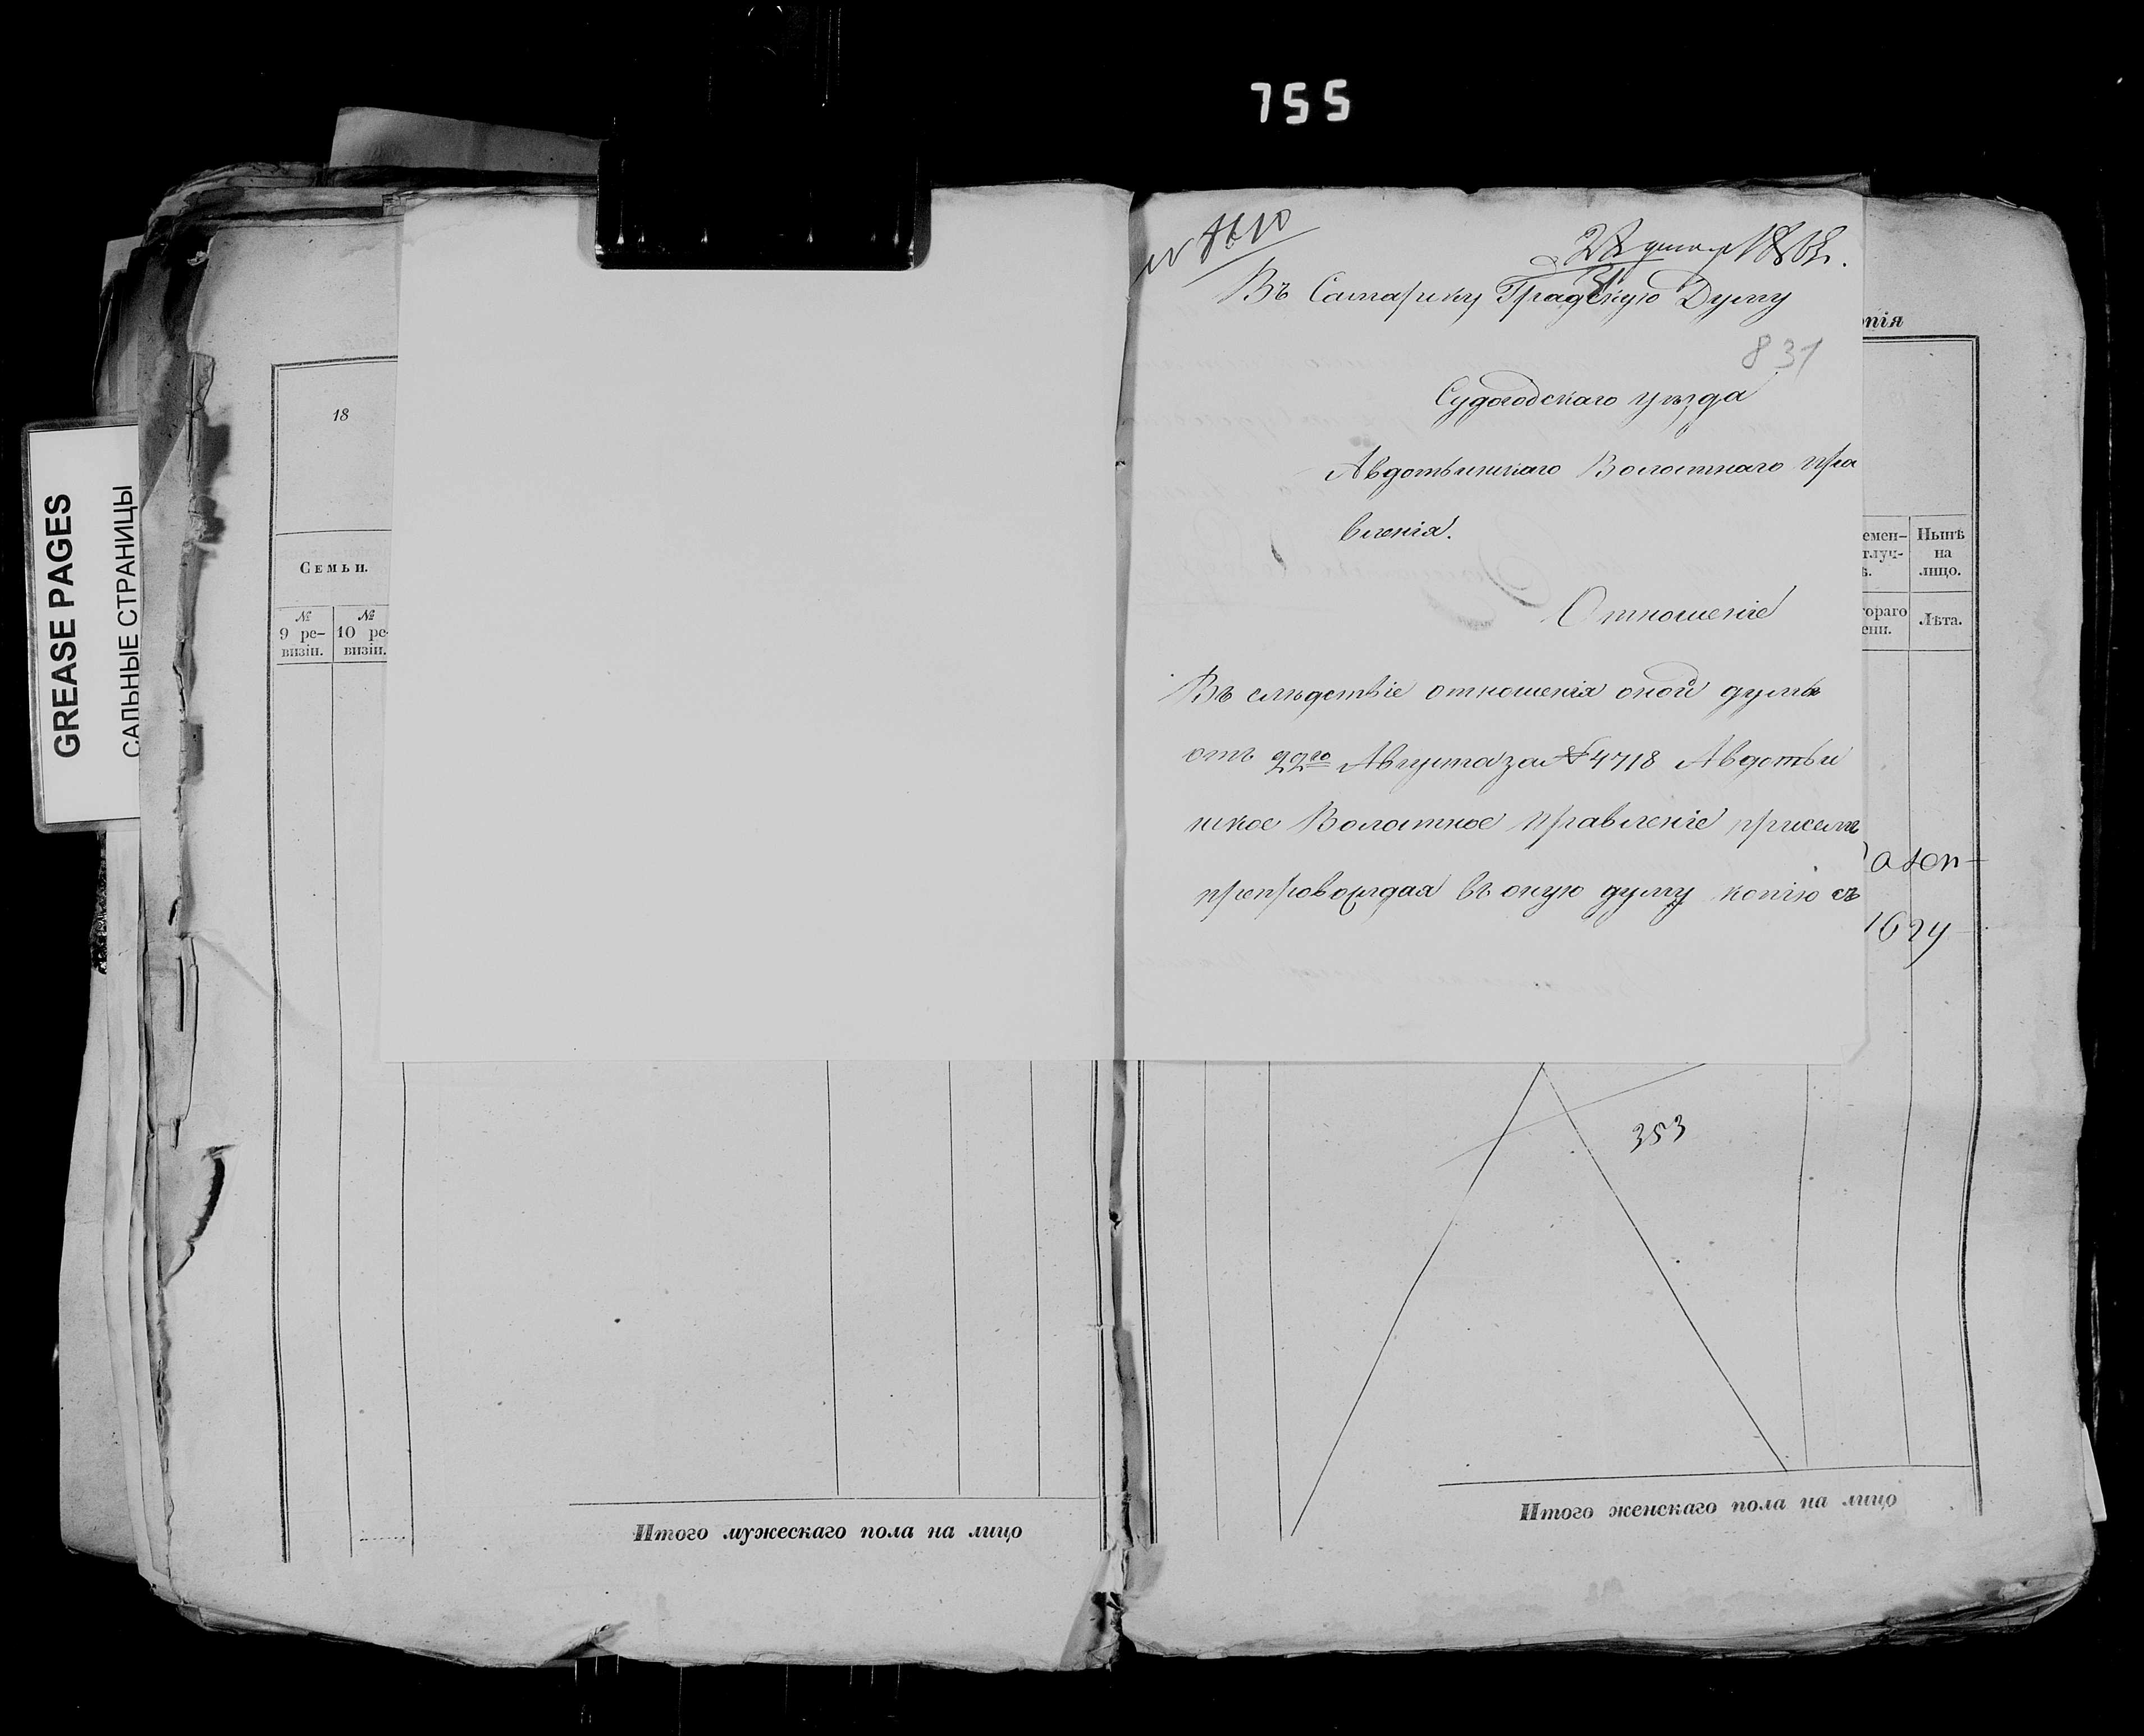 755
GREASE PAGES
САЛЬНЫЕ СТРАНИЦЫ
18
Семьи.
№ 9 ре-визіи.
№ 10 ре-визіи.
Въ Самарску Градскую Думу
831
Судогодскаго уѣзда
Авдотьинскаго Волостнаго пра
вленія.
Отношеніе
Въ слѣдствіе отношенія оной думы
отъ 22го Августа за № 4718 Авдотьи
нское Волостное правленіе присемъ
препровождая въ оную думу копію съ
пія
емен-
тлуч-
ѣ.
Нынѣ
на
лицо.
тораго
ени.
Лѣта.
353
Итого мужескаго пола на лицо
Итого женскаго пола на лицо